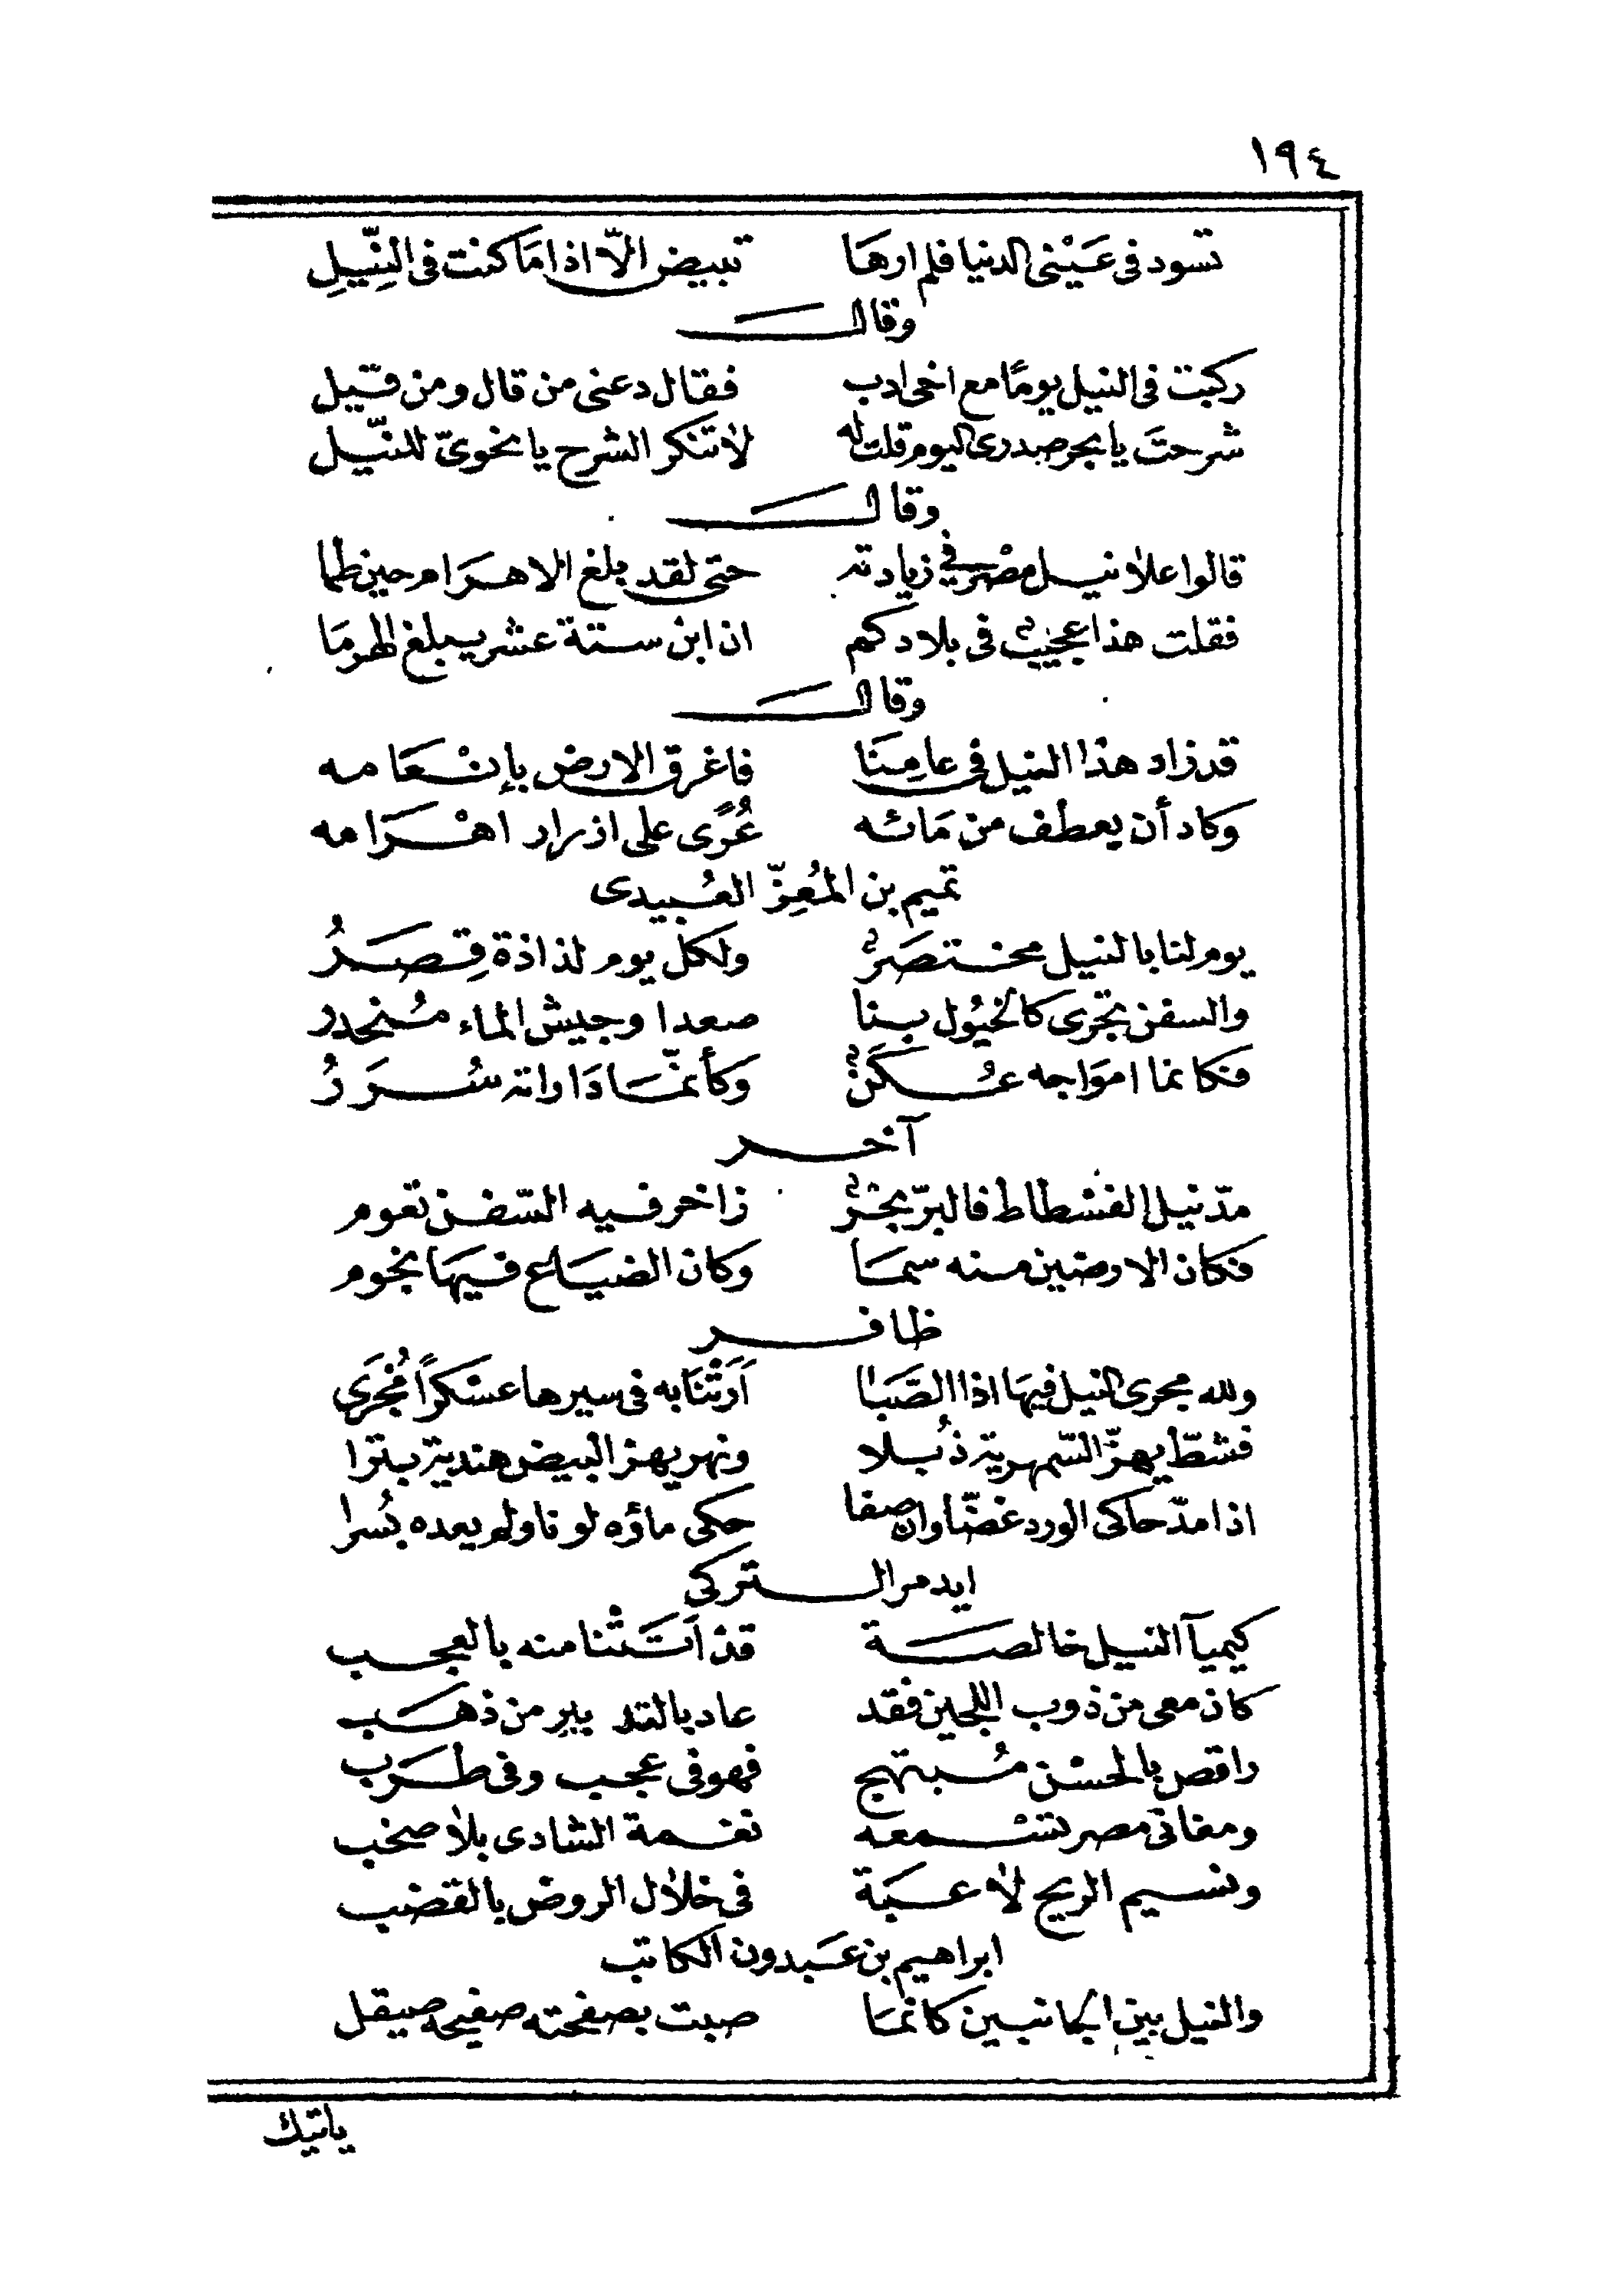 ١٩٤
تسود فى عَيْنى الدنيا فلم ارهَا تبيض الّا اذا مَا كنت فى النِّيلِ
وقالــَـ
ركبت فى النيل يومًا مع اخى ادب فقال دعنى من قال ومن قيل
شرحتَ يا بحر صدرى اليوم قلت له لا تنكر الشرح يا نحوىّ للنّيل
وقالــَـ
قالوا علا نيل مصْر فى زيادته حتى لقد بلغ الاهرام حين طما
فقلت هذا عجيبٌ فى بلادكم ان ابن ستة عشر يبلغ الهرمَا
وقالــَـ
قد زاد هذا النيل فى عامِنَا فاغرق الارض بإنْعَامه
وكاد أن يعطف من مَائه عُرًى على ازرار اهْرَامه
تميم بن المُعِزّ العُبيدى
يوم لنا بالنيل مختصَرٌ ولكل يوم لذاذة قِصَرُ
والسفن تجرى كالخيُول بنا صعدا وجيش الماء مُنحدر
فكانما اموَاجه عُكَنٌ وَكأنّمَا دَاراته سُرَرُ
آخر
مدّ نيل الفسْطاط فالبرّ بحْرٌ زاخر فيه السّفن تعوم
فكان الارضين منه سمَا وكان الضيَاع فيهَا نجوم
ظافر
ولله مجرى النيل فيهَا اذا الصَّبَا اَرَتْنَا به فى سيرها عسْكرًا مُجْرَى
فشطّ يهزّ السّمهرية ذُبلا ونهر يهز البيض هندية بترا
اذا مدّ حاكى الورد غضّا وان صفا حكى ماؤه لونا ولم يعده بُسرا
ايدمر التركى
كيميآ النيل خالصَة قد اَتَتْنا منه بالعجب
كان معى من ذوب اللجين فقد عاد بالتدبير من ذهَب
راقص بالحسْن مُبتهج فهو فى عجب وفى طرَب
ومغانى مصر تسْمعه نغمة الشادى بلا صخب
ونسيم الريح لاعبَة فى خلال الروض بالقضب
ابراهيم بن عَبدون الكاتب
والنيل بين الجانبين كانمَا صبت بصفحته صفيحة صيقل
ياتيك